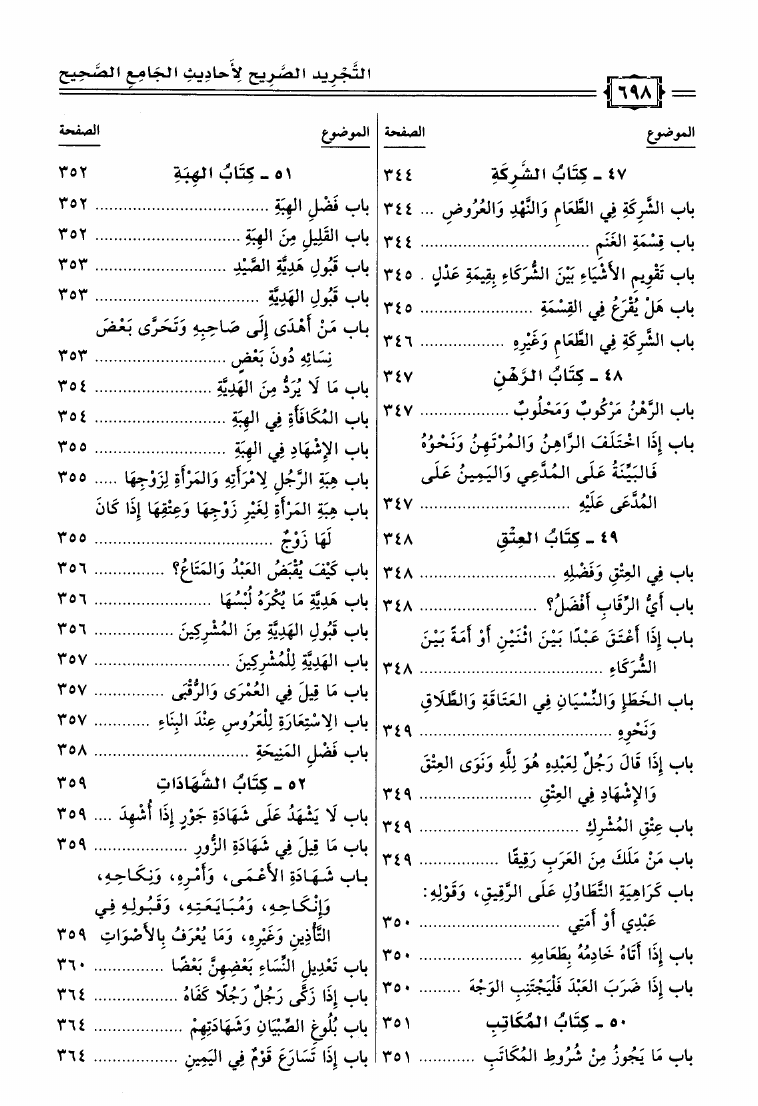 التَّجْرِيد الصَّرِيح لِأَحادِيثِ الجَامِعِ الصَّحِيح
٦٩٨
الموضوع الصفحة
٤٧ - كِتَابُ الشَّرِكَةِ ٣٤٤
باب الشَّرِكَةِ فِي الطَّعَامِ وَالنَّهْدِ وَالعُرُوضِ ... ٣٤٤
باب قِسْمَةِ الغَنَمِ ................ ٣٤٤
باب تَقْوِيمِ الأَشْيَاءِ بَيْنَ الشُّرَكَاءِ بِقِيمَةِ عَدْلٍ . ٣٤٥
باب هَلْ يُقْرَعُ فِي القِسْمَةِ ................ ٣٤٥
باب الشَّرِكَةِ فِي الطَّعَامِ وَغَيْرِهِ ................ ٣٤٦
٤٨ - كِتَابُ الرَّهْنِ ٣٤٧
باب الرَّهْنُ مَرْكُوبٌ وَمَحْلُوبٌ ................ ٣٤٧
باب إِذَا اخْتَلَفَ الرَّاهِنُ وَالمُرْتَهِنُ وَنَحْوُهُ
فَالبَيِّنَةُ عَلَى المُدَّعِي وَاليَمِينُ عَلَى
المُدَّعَى عَلَيْهِ ................ ٣٤٧
٤٩ - كِتَابُ العِتْقِ ٣٤٨
باب فِي العِتْقِ وَفَضْلِهِ ................ ٣٤٨
باب أَيُّ الرِّقَابِ أَفْضَلُ؟ ................ ٣٤٨
باب إِذَا أَعْتَقَ عَبْدًا بَيْنَ اثْنَيْنِ أَوْ أَمَةً بَيْنَ
الشُّرَكَاءِ ................ ٣٤٨
باب الخَطَإِ وَالنِّسْيَانِ فِي العَتَاقَةِ وَالطَّلَاقِ
وَنَحْوِهِ ................ ٣٤٩
باب إِذَا قَالَ رَجُلٌ لِعَبْدِهِ هُوَ لِلَّهِ وَنَوَى العِتْقَ
وَالإِشْهَادِ فِي العِتْقِ ................ ٣٤٩
باب عِتْقِ المُشْرِكِ ................ ٣٤٩
باب مَنْ مَلَكَ مِنَ العَرَبِ رَقِيقًا ................ ٣٤٩
باب كَرَاهِيَةِ التَّطَاوُلِ عَلَى الرَّقِيقِ، وَقَوْلِهِ:
عَبْدِي أَوْ أَمَتِي ................ ٣٥٠
باب إِذَا أَتَاهُ خَادِمُهُ بِطَعَامِهِ ................ ٣٥٠
باب إِذَا ضَرَبَ العَبْدَ فَلْيَجْتَنِبِ الوَجْهَ ......... ٣٥٠
٥٠ - كِتَابُ المُكَاتَبِ ٣٥١
باب مَا يَجُوزُ مِنْ شُرُوطِ المُكَاتَبِ ............ ٣٥١
الموضوع الصفحة
٥١ - كِتَابُ الهِبَةِ ٣٥٢
باب فَضْلِ الهِبَةِ ................ ٣٥٢
باب القَلِيلِ مِنَ الهِبَةِ ................ ٣٥٢
باب قَبُولِ هَدِيَّةِ الصَّيْدِ ................ ٣٥٣
باب قَبُولِ الهَدِيَّةِ ................ ٣٥٣
باب مَنْ أَهْدَى إِلَى صَاحِبِهِ وَتَحَرَّى بَعْضَ
نِسَائِهِ دُونَ بَعْضٍ ................ ٣٥٣
باب مَا لَا يُرَدُّ مِنَ الهَدِيَّةِ ................ ٣٥٤
باب المُكَافَأَةِ فِي الهِبَةِ ................ ٣٥٤
باب الإِشْهَادِ فِي الهِبَةِ ................ ٣٥٥
باب هِبَةِ الرَّجُلِ لِامْرَأَتِهِ وَالمَرْأَةِ لِزَوْجِهَا ..... ٣٥٥
باب هِبَةِ المَرْأَةِ لِغَيْرِ زَوْجِهَا وَعِتْقِهَا إِذَا كَانَ
لَهَا زَوْجٌ ................ ٣٥٥
باب كَيْفَ يُقْبَضُ العَبْدُ وَالمَتَاعُ؟ .............. ٣٥٦
باب هَدِيَّةِ مَا يُكْرَهُ لُبْسُهَا ................ ٣٥٦
باب قَبُولِ الهَدِيَّةِ مِنَ المُشْرِكِينَ ................ ٣٥٦
باب الهَدِيَّةِ لِلْمُشْرِكِينَ ................ ٣٥٧
باب مَا قِيلَ فِي العُمْرَى وَالرُّقْبَى .............. ٣٥٧
باب الِاسْتِعَارَةِ لِلْعَرُوسِ عِنْدَ البِنَاءِ ............ ٣٥٧
باب فَضْلِ المَنِيحَةِ ................ ٣٥٨
٥٢ - كِتَابُ الشَّهَادَاتِ ٣٥٩
باب لَا يَشْهَدُ عَلَى شَهَادَةِ جَوْرٍ إِذَا أُشْهِدَ .... ٣٥٩
باب مَا قِيلَ فِي شَهَادَةِ الزُّورِ ................ ٣٥٩
باب شَهَادَةِ الأَعْمَى، وَأَمْرِهِ، وَنِكَاحِهِ،
وَإِنْكَاحِهِ، وَمُبَايَعَتِهِ، وَقَبُولِهِ فِي
التَّأْذِينِ وَغَيْرِهِ، وَمَا يُعْرَفُ بِالأَصْوَاتِ ٣٥٩
باب تَعْدِيلِ النِّسَاءِ بَعْضِهِنَّ بَعْضًا .............. ٣٦٠
باب إِذَا زَكَّى رَجُلٌ رَجُلًا كَفَاهُ ................ ٣٦٤
باب بُلُوغِ الصِّبْيَانِ وَشَهَادَتِهِمْ ................ ٣٦٤
باب إِذَا تَسَارَعَ قَوْمٌ فِي اليَمِينِ ................ ٣٦٤